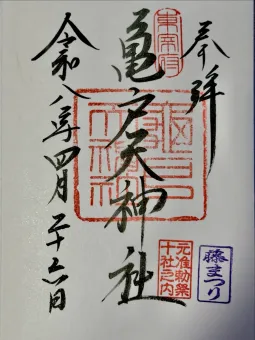 奉拝
東宰府
亀戸天神社
元准勅祭
十社之内
藤まつり
令和八年四月二十六日